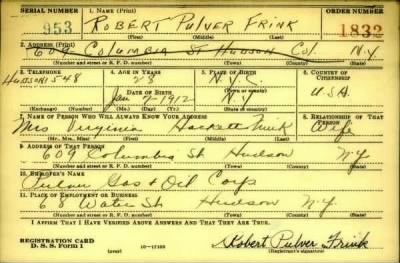 SERIAL NUMBER 1. NAME (Print) ORDER NUMBER
953 ROBERT PULVER FRINK 1832
2. ADDRESS (Print)
609 COLUMBIA ST HUDSON Col. N.Y.
(Number and street or R. F. D. number) (Town) (County) (State)
3. TELEPHONE 4. AGE IN YEARS 5. PLACE OF BIRTH 6. COUNTRY OF CITIZENSHIP
HUDSON 1548 28 N.Y.C.
DATE OF BIRTH (Town or county)
Jan 7-1912 N.Y. USA
(Exchange) (Number) (Mo.) (Day) (Yr.) (State or country)
7. NAME OF PERSON WHO WILL ALWAYS KNOW YOUR ADDRESS 8. RELATIONSHIP OF THAT PERSON
Mrs Virginia Hackett Frink Wife
(Mr., Mrs., Miss) (First) (Middle) (Last)
9. ADDRESS OF THAT PERSON
609 Columbia St Hudson N.Y.
(Number and street or R. F. D. number) (Town) (County) (State)
10. EMPLOYER'S NAME
Pulver Gas & Oil Corp
11. PLACE OF EMPLOYMENT OR BUSINESS
68 Water St Hudson N.Y.
(Number and street or R. F. D. number) (Town) (County) (State)
I AFFIRM THAT I HAVE VERIFIED ABOVE ANSWERS AND THAT THEY ARE TRUE.
REGISTRATION CARD
D. S. S. Form 1 (over) Robert Pulver Frink
(Registrant's signature)